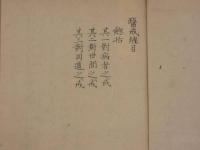 醫戒總目
總括
其一對病者之戒
其二對世間之戒
其三對同道之戒